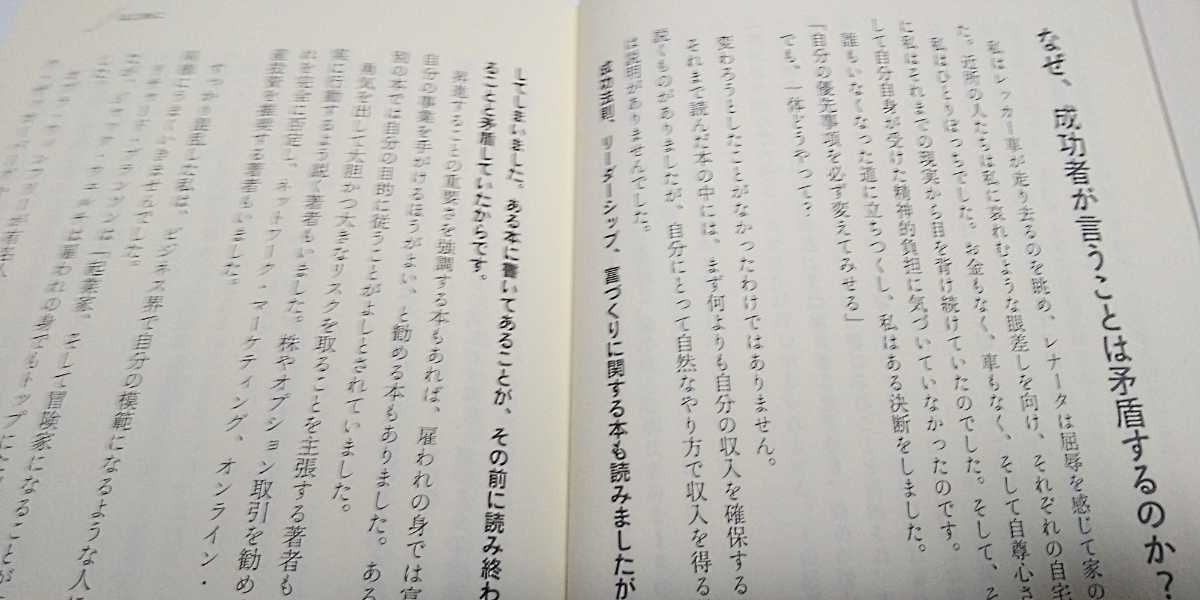 なぜ、成功者が言うことは矛盾するのか？
私はレッカー車が走り去るのを眺め、レナータは屈辱を感じて家の
た。近所の人たちは私に哀れむような眼差しを向け、それぞれの自宅
私はひとりぼっちでした。お金もなく、車もなく、そして自尊心さ
に私はそれまでの現実から目を背け続けていたのでした。そして、そ
して自分自身が受けた精神的負担に気づいていなかったのです。
誰もいなくなった道に立ちつくし、私はある決断をしました。
「自分の優先事項を必ず変えてみせる」
でも、一体どうやって？
変わろうとしたことがなかったわけではありません。
それまで読んだ本の中には、まず何よりも自分の収入を確保する
説くものがありましたが、自分にとって自然なやり方で収入を得る
は説明がありませんでした。
成功法則、リーダーシップ、富づくりに関する本も読みましたが
してしまいました。ある本に書いてあることが、その前に読み終わ
ることと矛盾していたからです。
昇進することの重要さを強調する本もあれば、雇われの身では富
自分の事業を手がけるほうがよい、と勧める本もありました。ある
別の本では自分の目的に従うことがよしとされていました。
勇気を出して大胆かつ大きなリスクを取ることを主張する著者も
実に行動するよう説く著者もいました。株やオプション取引を勧め
れを完全に否定し、ネットワーク・マーケティング、オンライン・
産投資を推奨する著者もいました。
すっかり混乱した私は、ビジネス界で自分の模範になるような人
局うまくいきませんでした。
ブランソンは起業家、そして冒険家になること
ジャック・ウェルチは雇われの身でもトップに